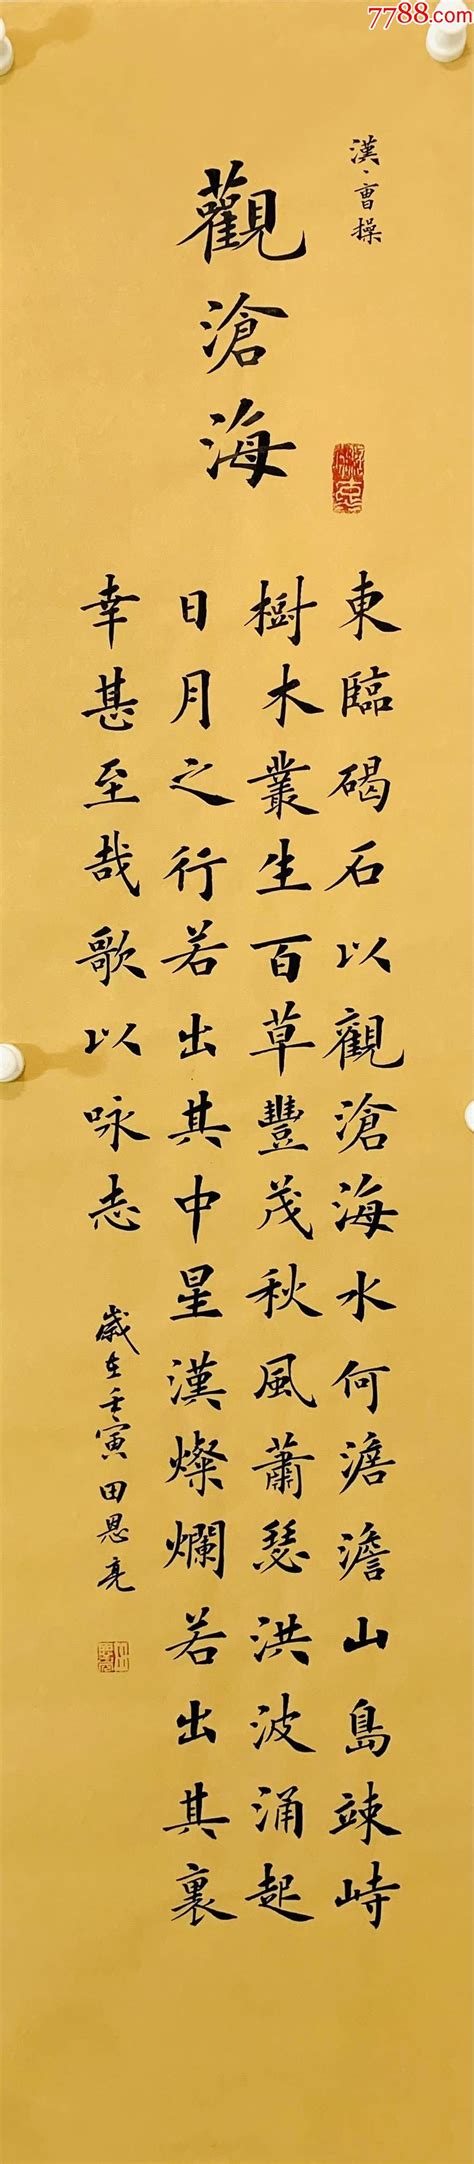 7788.com
漢、曹操
觀滄海
東臨碣石以觀滄海水何澹澹山島竦峙
樹木叢生百草豐茂秋風蕭瑟洪波涌起
日月之行若出其中星漢燦爛若出其裏
幸甚至哉歌以咏志
歲在壬寅田恩亮